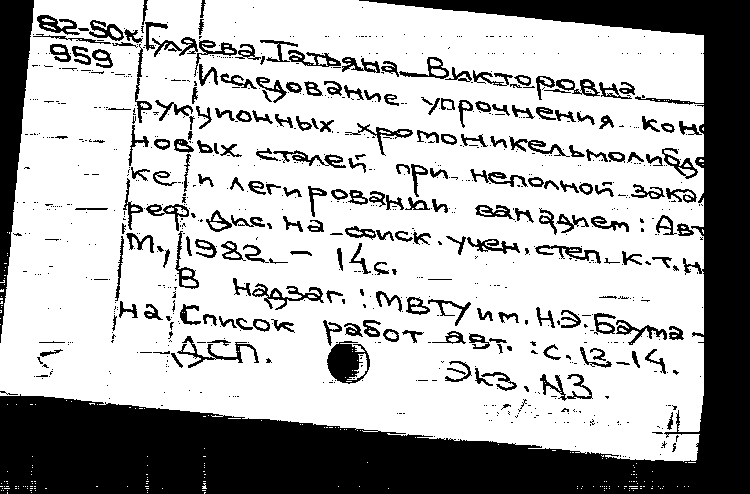 82-50к Гуляева, Татьяна Викторовна.
959
Исследование упрочнения конс
рукционных хромоникельмолибде
новых сталей при неполной закал
ке и легировании ванадием: Авт
реф. дис. на соиск. учен. степ. к.т.н.
М., 1982. - 14 с.
В надзаг.: МВТУ им. Н.Э. Баума-
на. Список работ авт.: с. 13-14.
ДСП.
Экз. N3.
5